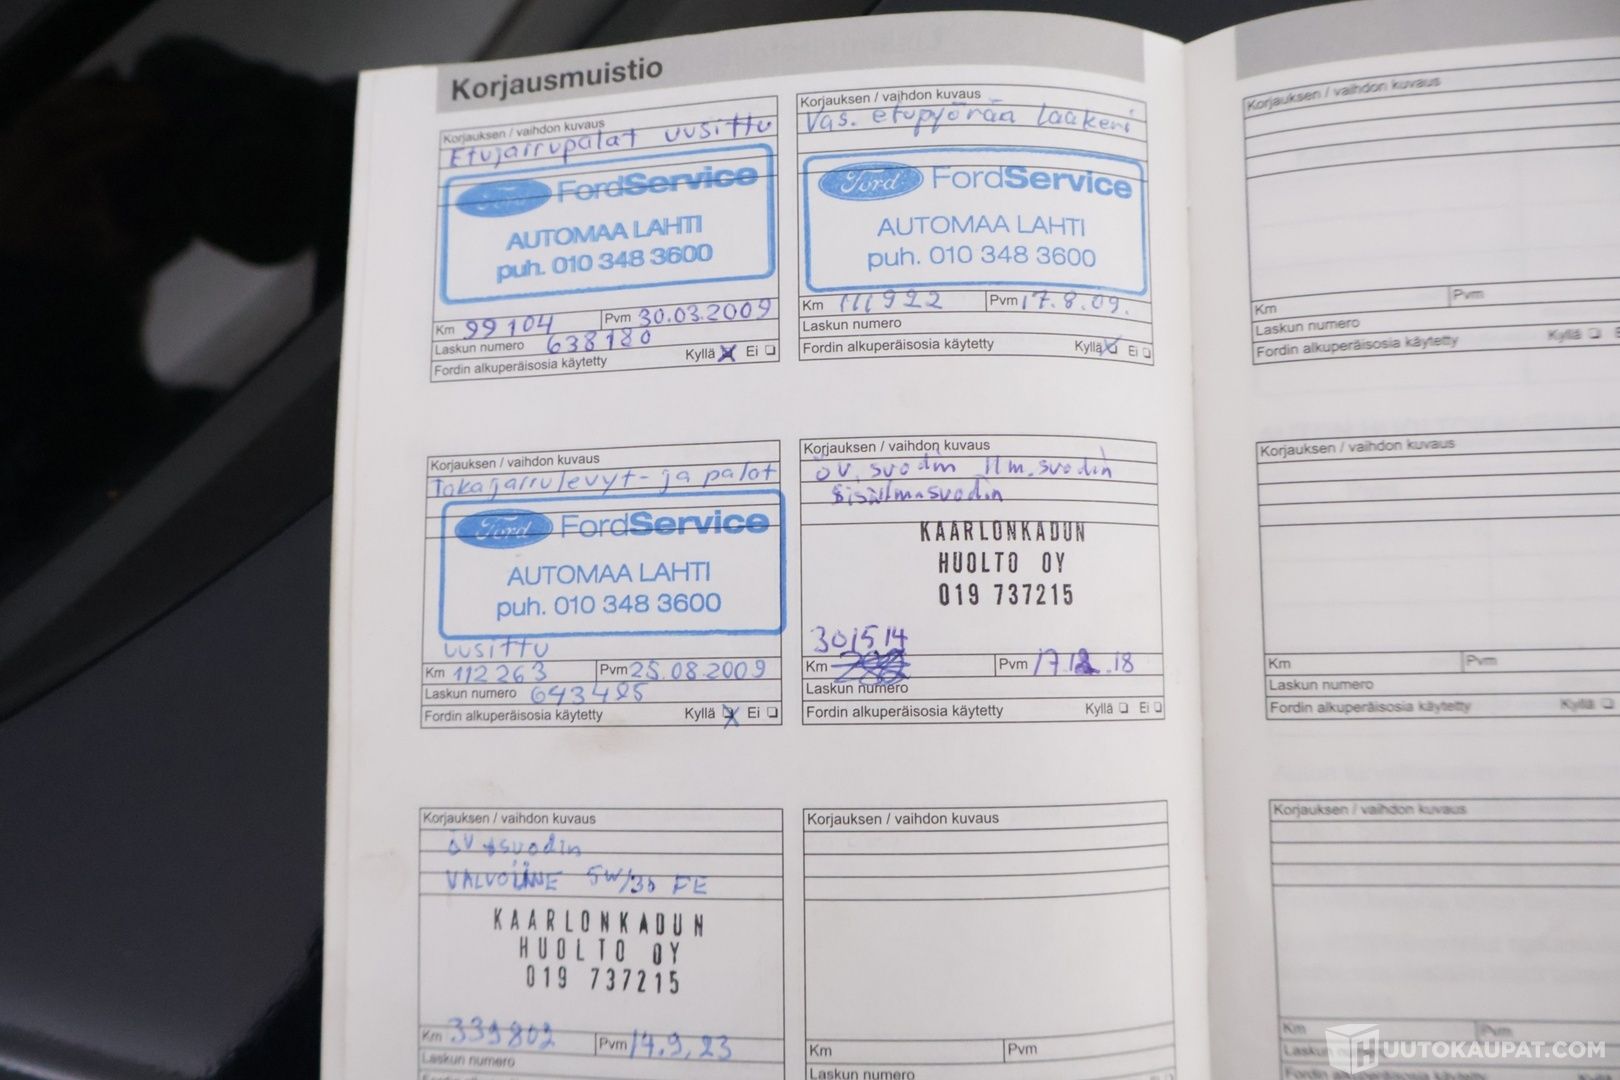 Korjausmuistio
Korjauksen / vaihdon kuvaus
Etujarrupalat uusittu
Ford FordService
AUTOMAA LAHTI
puh. 010 348 3600
Km 99104 Pvm 30.03.2009
Laskun numero 638180
Fordin alkuperäisosia käytetty Kyllä Ei
Korjauksen / vaihdon kuvaus
Vas. etupyörän laakeri
Ford FordService
AUTOMAA LAHTI
puh. 010 348 3600
Km 111922 Pvm 17.8.09.
Laskun numero
Fordin alkuperäisosia käytetty Kyllä Ei
Korjauksen / vaihdon kuvaus
Takajarrulevyt- ja palat
Ford FordService
AUTOMAA LAHTI
puh. 010 348 3600
uusittu
Km 112263 Pvm 25.08.2009
Laskun numero 643485
Fordin alkuperäisosia käytetty Kyllä Ei
Korjauksen / vaihdon kuvaus
öv. suodin ilm.suodin
sisilmasuodin
KAARLONKADUN
HUOLTO OY
019 737215
301514
Km Pvm 17.12.18
Laskun numero
Fordin alkuperäisosia käytetty Kyllä Ei
Korjauksen / vaihdon kuvaus
öv+suodin
VALVOLINE 5W/30 FE
KAARLONKADUN
HUOLTO OY
019 737215
Km 339802 Pvm 14.9.23
Laskun numero
Korjauksen / vaihdon kuvaus
Km Pvm
Laskun numero
Korjauksen / vaihdon kuvaus
Km Pvm
Laskun numero
Fordin alkuperäisosia käytetty Kyllä
Korjauksen / vaihdon kuvaus
Km Pvm
Laskun numero
Fordin alkuperäisosia käytetty Kyllä
Korjauksen / vaihdon kuvaus
Km Pvm
Laskun
Fordin alkuperäisosia
HUUTOKAUPAT.COM